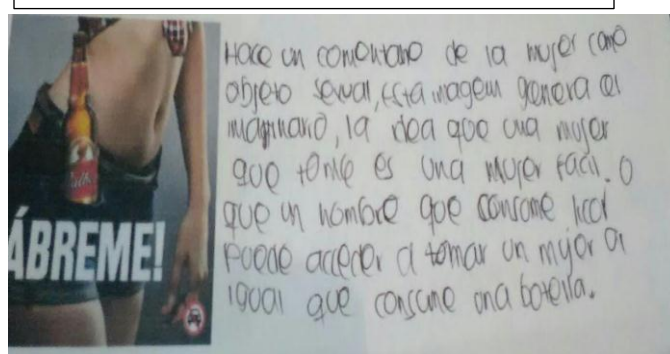 ÁBREME!
Hace un comentario de la mujer como
objeto sexual, Esta imagen genera el
imaginario, la idea que una mujer
que tome es una mujer facil. O
que un hombre que consume licor
puede acceder a tomar un mujer al
igual que consume una botella.